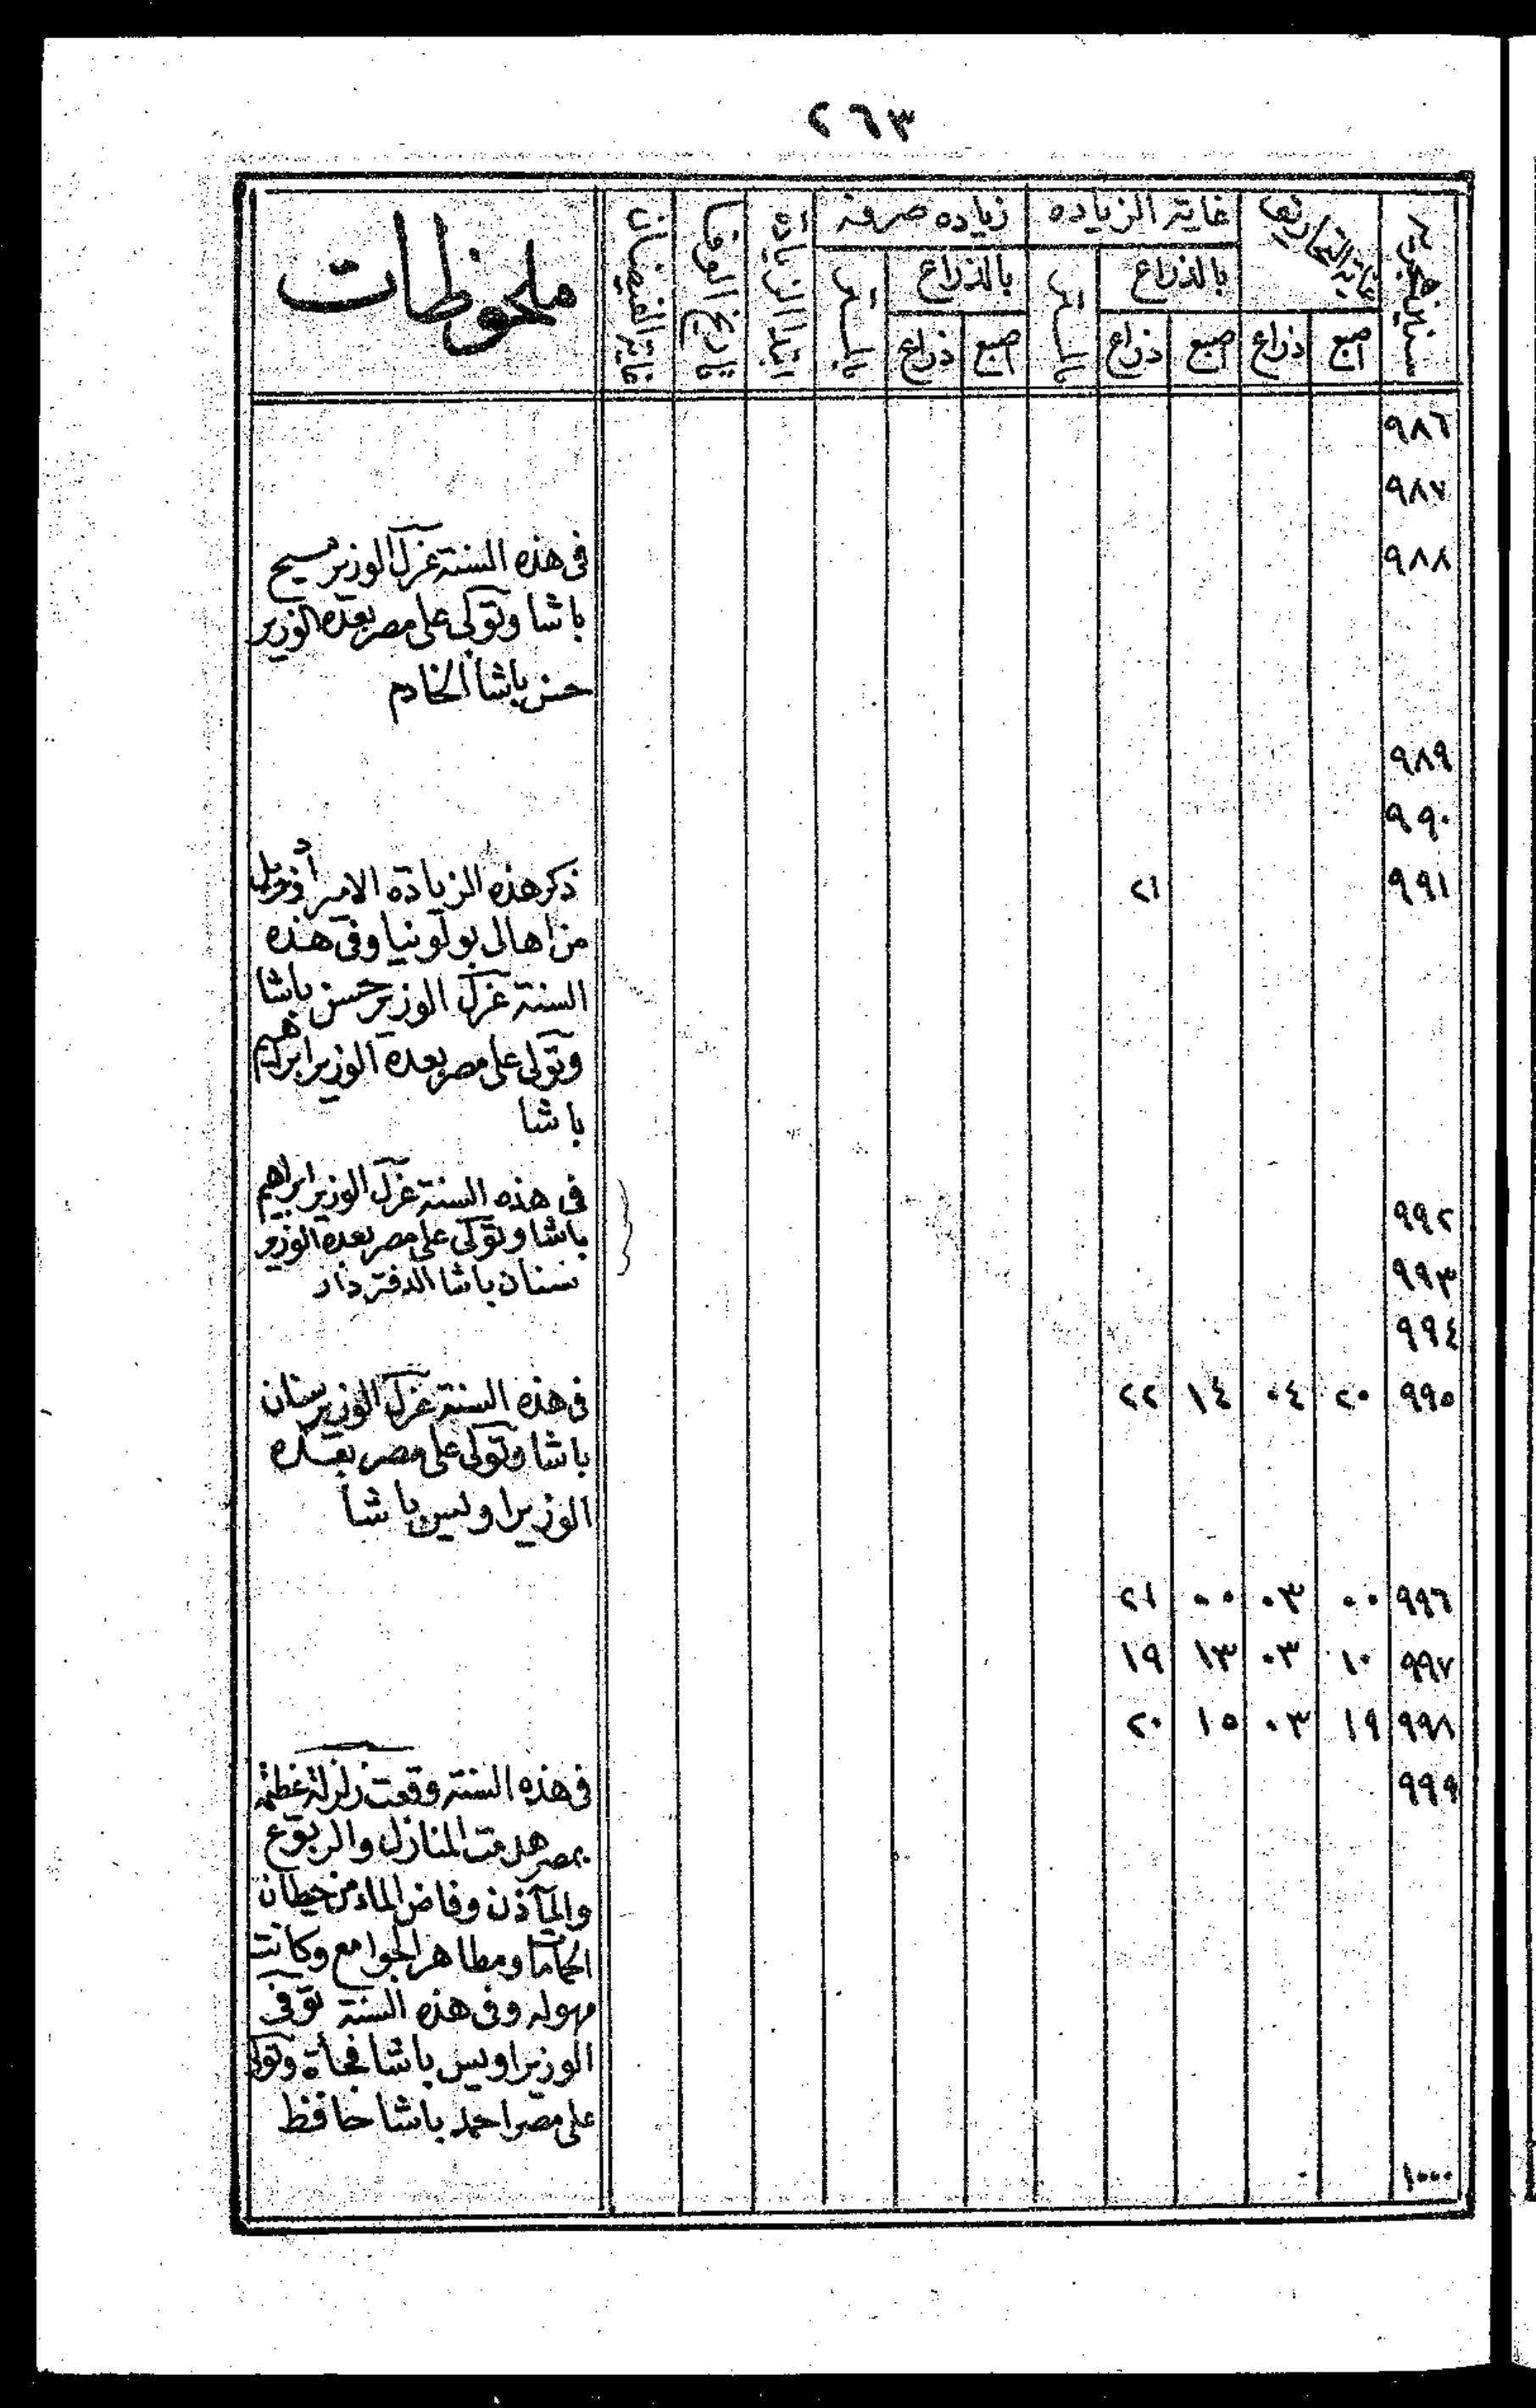 ٢٦٣
سنين هجريه
غاية التحاريق
غاية الزياده
زياده صرفه
ابتدا الزيادة
تاريخ الوفا
غاية الفيضان
ملحوظات
بالذراع
بالمتر
بالذراع
بالمتر
اصبع
ذراع
اصبع
ذراع
اصبع
ذراع
٩٨٦
٩٨٧
٩٨٨
فى هذه السنة عزل الوزير مسيح
باشا وتولى على مصر بعده الوزير
حسن باشا الخادم
٩٨٩
٩٩٠
٩٩١ ٢١
ذكر هذه الزيادة الامير
من اهالى بولونيا وفى هذه
السنة عزل الوزير حسن باشا
وتولى على مصر بعده الوزير ابراهيم
باشا
٩٩٢
٩٩٣
فى هذه السنة عزل الوزير ابراهيم
باشا وتولى على مصر بعده الوزير
سنان باشا الدفتردار
٩٩٤
٩٩٥ ٢٠ ٠٤ ١٤ ٢٢
فى هذه السنة عزل الوزير سنان
باشا وتولى على مصر بعده
الوزير اويس باشا
٩٩٦ ٠٠ ٠٣ ٠٠ ٢١
٩٩٧ ١٠ ٠٣ ١٣ ١٩
٩٩٨ ١٩ ٠٣ ١٥ ٢٠
٩٩٩
فى هذه السنة وقعت زلزلة عظيمة
بمصر هدمت المنازل والربوع
والمآذن وفاض الماء من حيطان
الحمامات ومطاهر الجوامع وكانت
مهوله وفى هذه السنة توفى
الوزير اويس باشا فجأة وتولى
على مصر احمد باشا حافظ
١٠٠٠